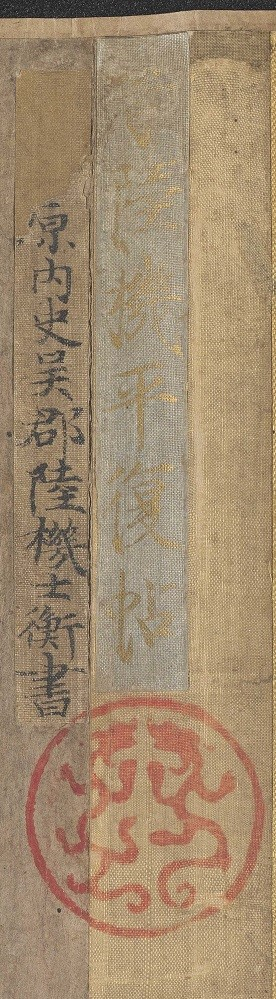 陸機平復帖
原内史吳郡陸機士衡書